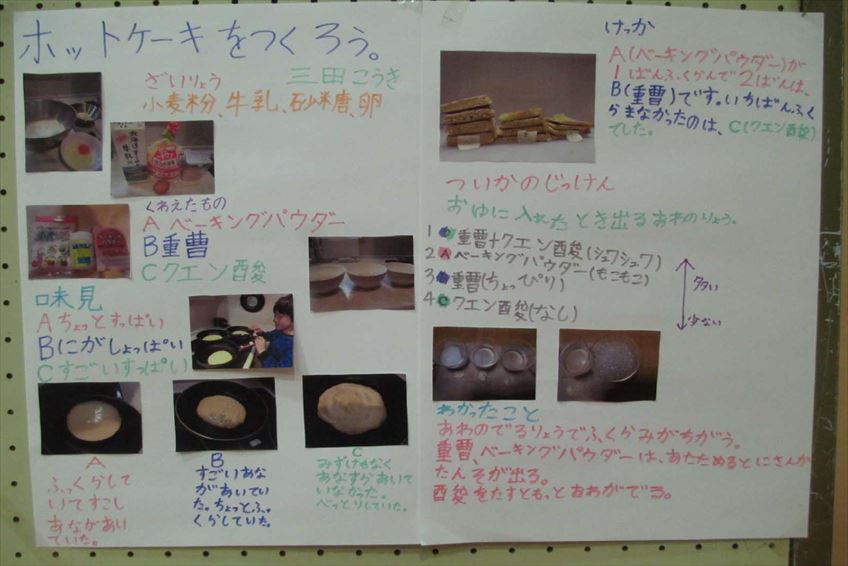 ホットケーキをつくろう。
ざいりょう 三田こうき
小麦粉、牛乳、砂糖、卵
くわえたもの
Aベーキングパウダー
B重曹
Cクエン酸
味見
Aちょっとすっぱい
Bにがしょっぱい
Cすごいすっぱい
A
ふっくらして
いてすこし
あながあい
ていた。
B
すごいあな
があいてい
た。ちょっとふっ
くらしていた。
C
みずけがなく
あなすらあいて
いなかった。
べっとりしていた。
けっか
A(ベーキングパウダー)が
1ばんふくらんで2ばんは、
B(重曹)です。いちばんふく
らまなかったのは、C(クエン酸)
でした。
ついかのじっけん
おゆに入れたとき出るあわのりょう。
1 重曹+クエン酸(シュワシュワ)
2 Aベーキングパウダー(もこもこ)
3 重曹(ちょっぴり)
4 Cクエン酸(なし)
多い
少ない
わかったこと
あわのでるりょうでふくらみがちがう。
重曹、ベーキングパウダーは、あたためるとにさんか
たんそが出る。
酸をたすともっとあわがでる。